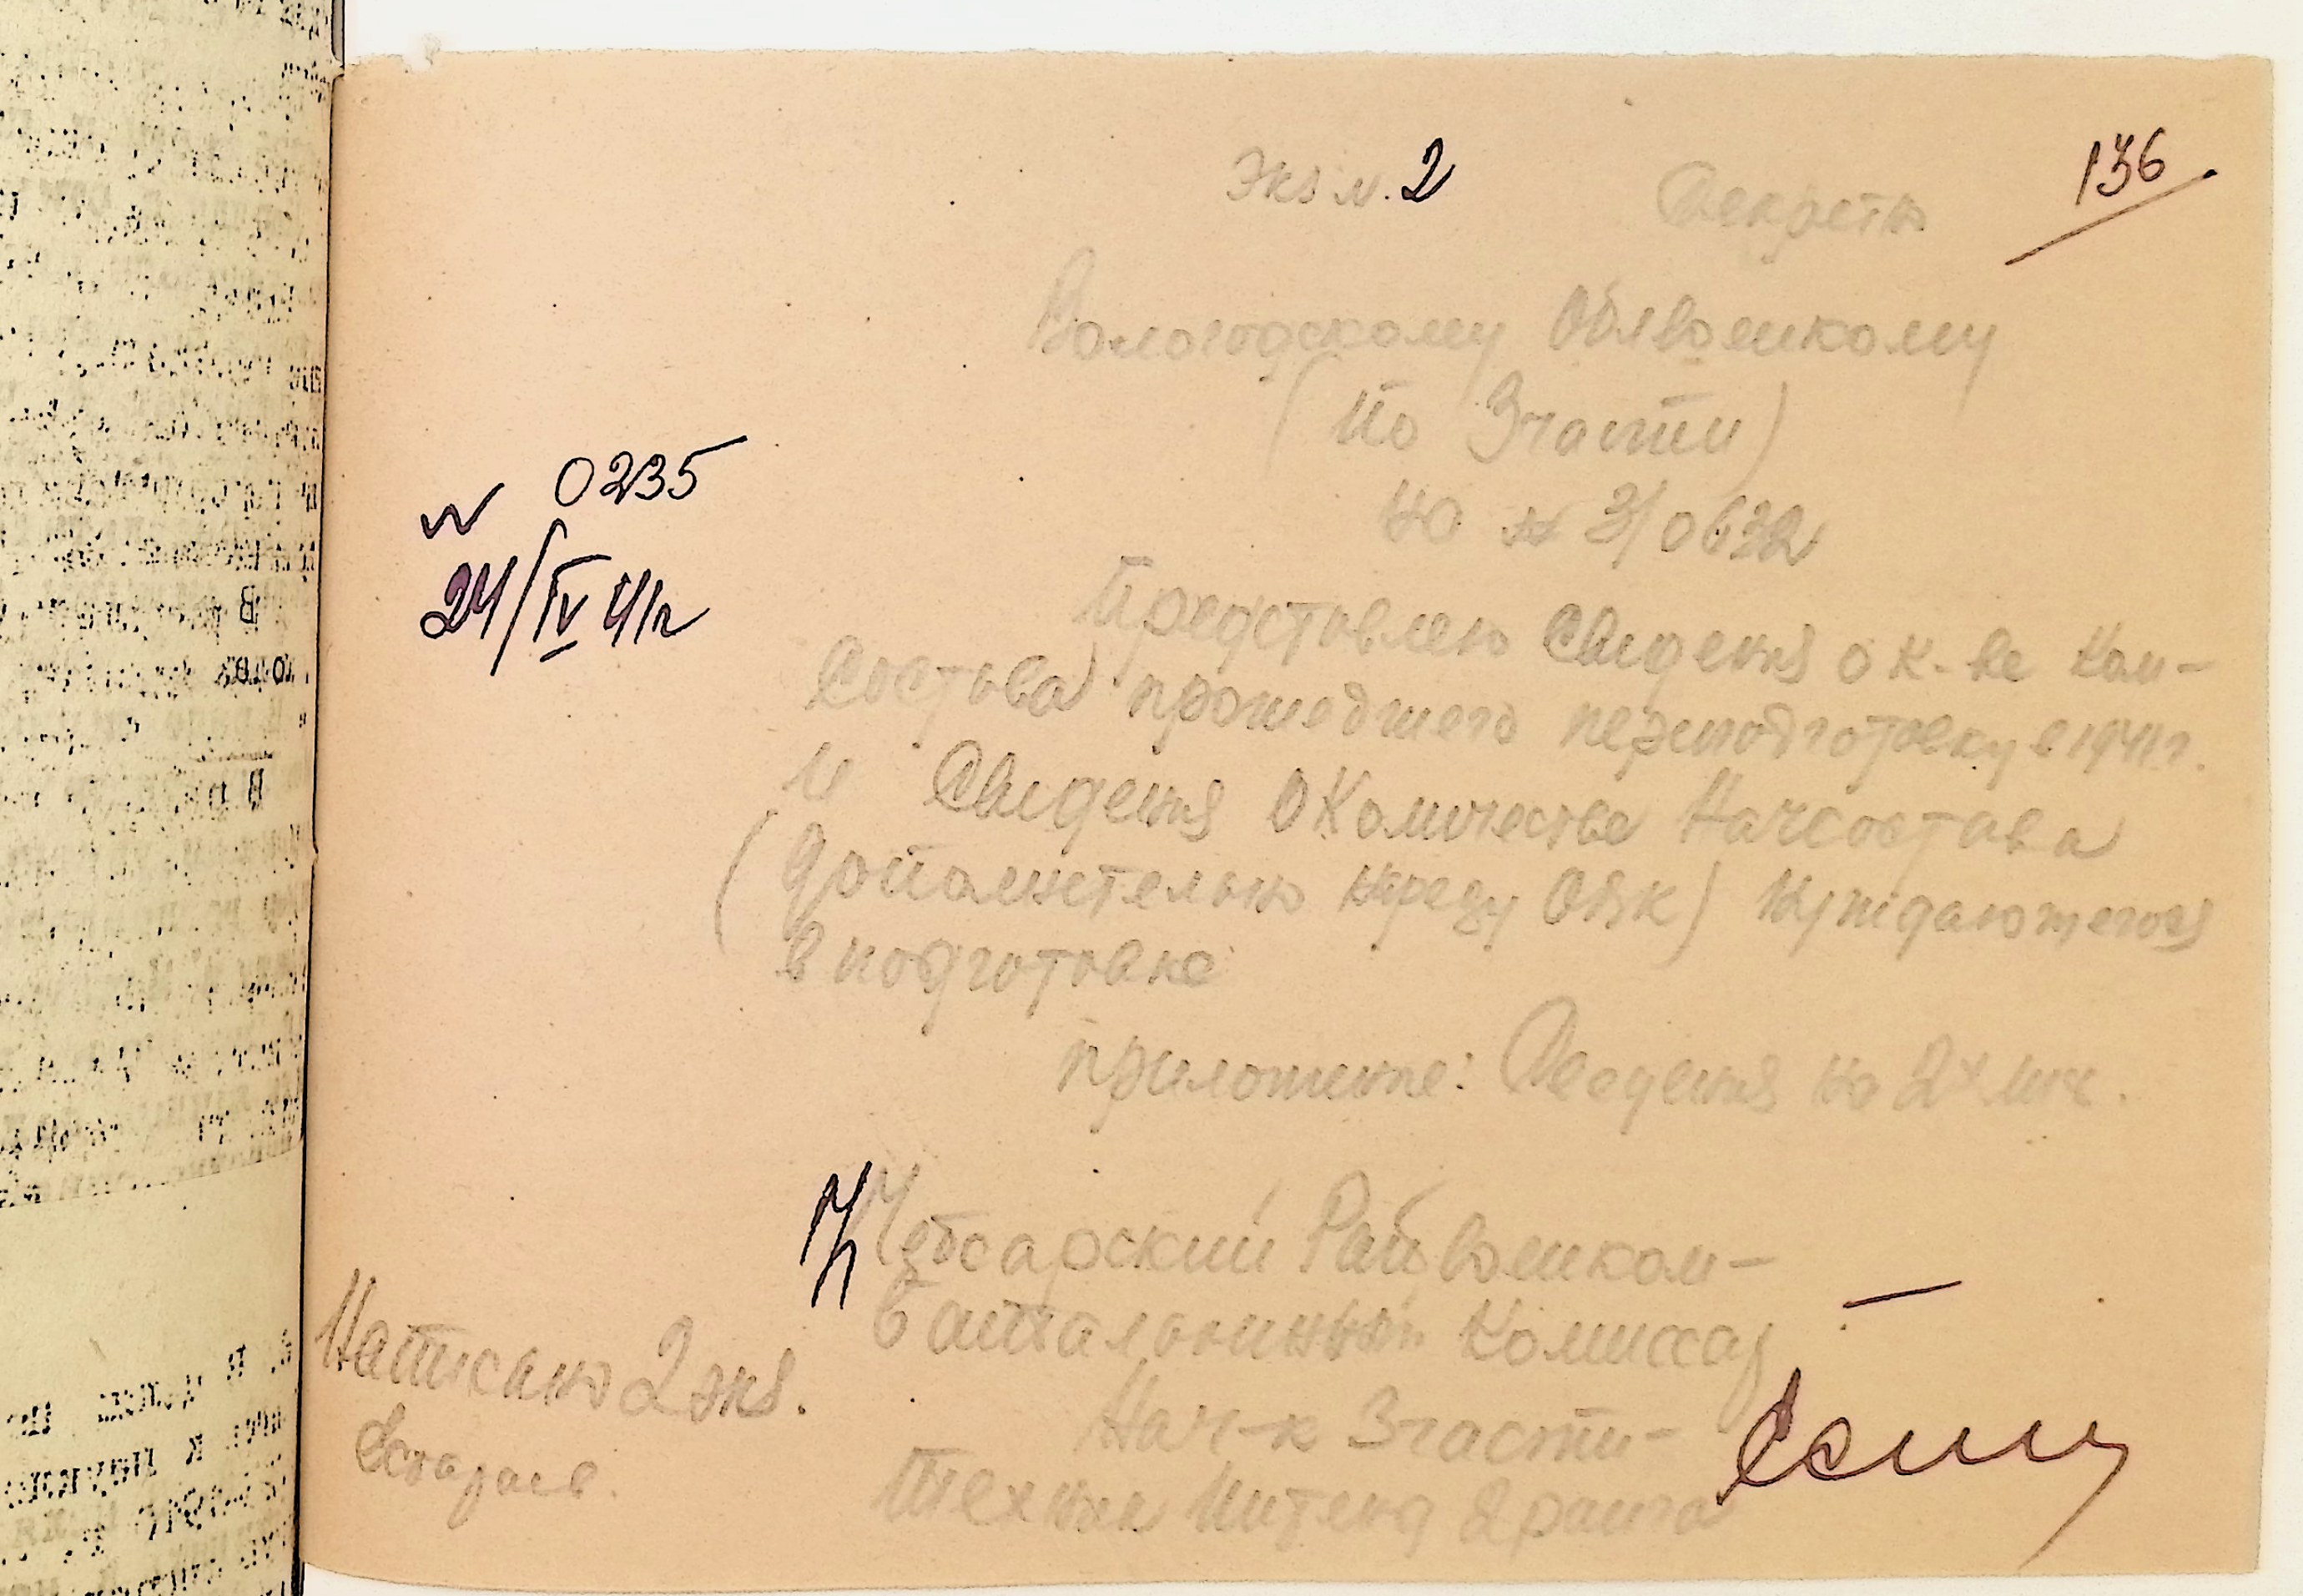 Экз №.2 Секретно
136
Вологодскому Облвоенкому
(По 3 части)
На № 3/0632
№ 0235
24/IV 41г
Представляю Сведения о к-ве Ком-
Состава прошедшего переподготовку в 1941г.
и Сведения О Количестве Начсостава
(Дополнительно к преду ОВК) Нуждающегося
в подготовке
приложение: Сведения на 2х лис.
п/п Чебсарский Райвоенком-
Батальонный Комиссар
Нач-к 3 части-
Техник Интенд 2 ранга
Написано 2 экз.